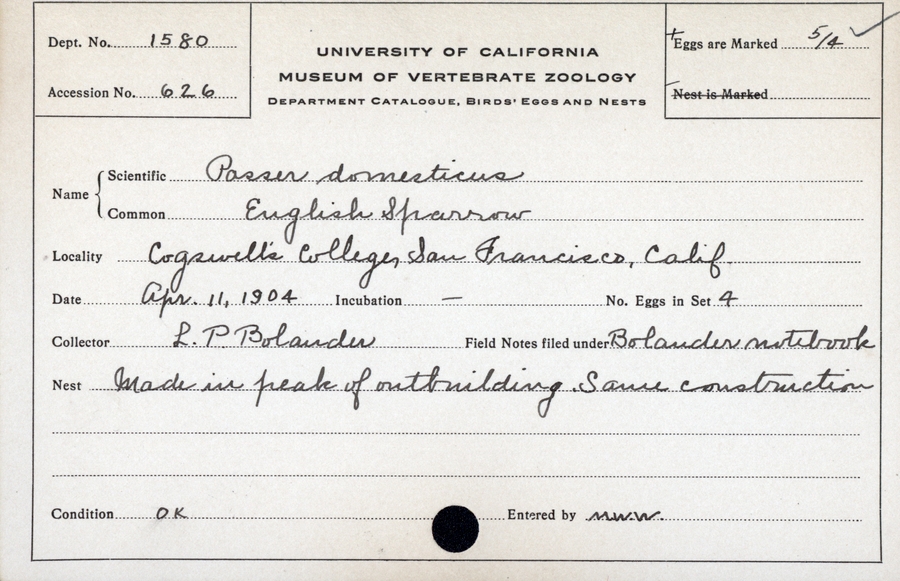 Dept. No. 1580
Accession No. 626
UNIVERSITY OF CALIFORNIA
MUSEUM OF VERTEBRATE ZOOLOGY
DEPARTMENT CATALOGUE, BIRDS' EGGS AND NESTS
Eggs are Marked 5/4 ✓
Nest is Marked
Name
Scientific Passer domesticus
Common English Sparrow
Locality Cogswell's College, San Francisco, Calif.
Date Apr. 11, 1904 Incubation — No. Eggs in Set 4
Collector L. P Bolander Field Notes filed under Bolander notebook
Nest Made in peak of outbuilding. Same construction
Condition OK Entered by M.W.W.